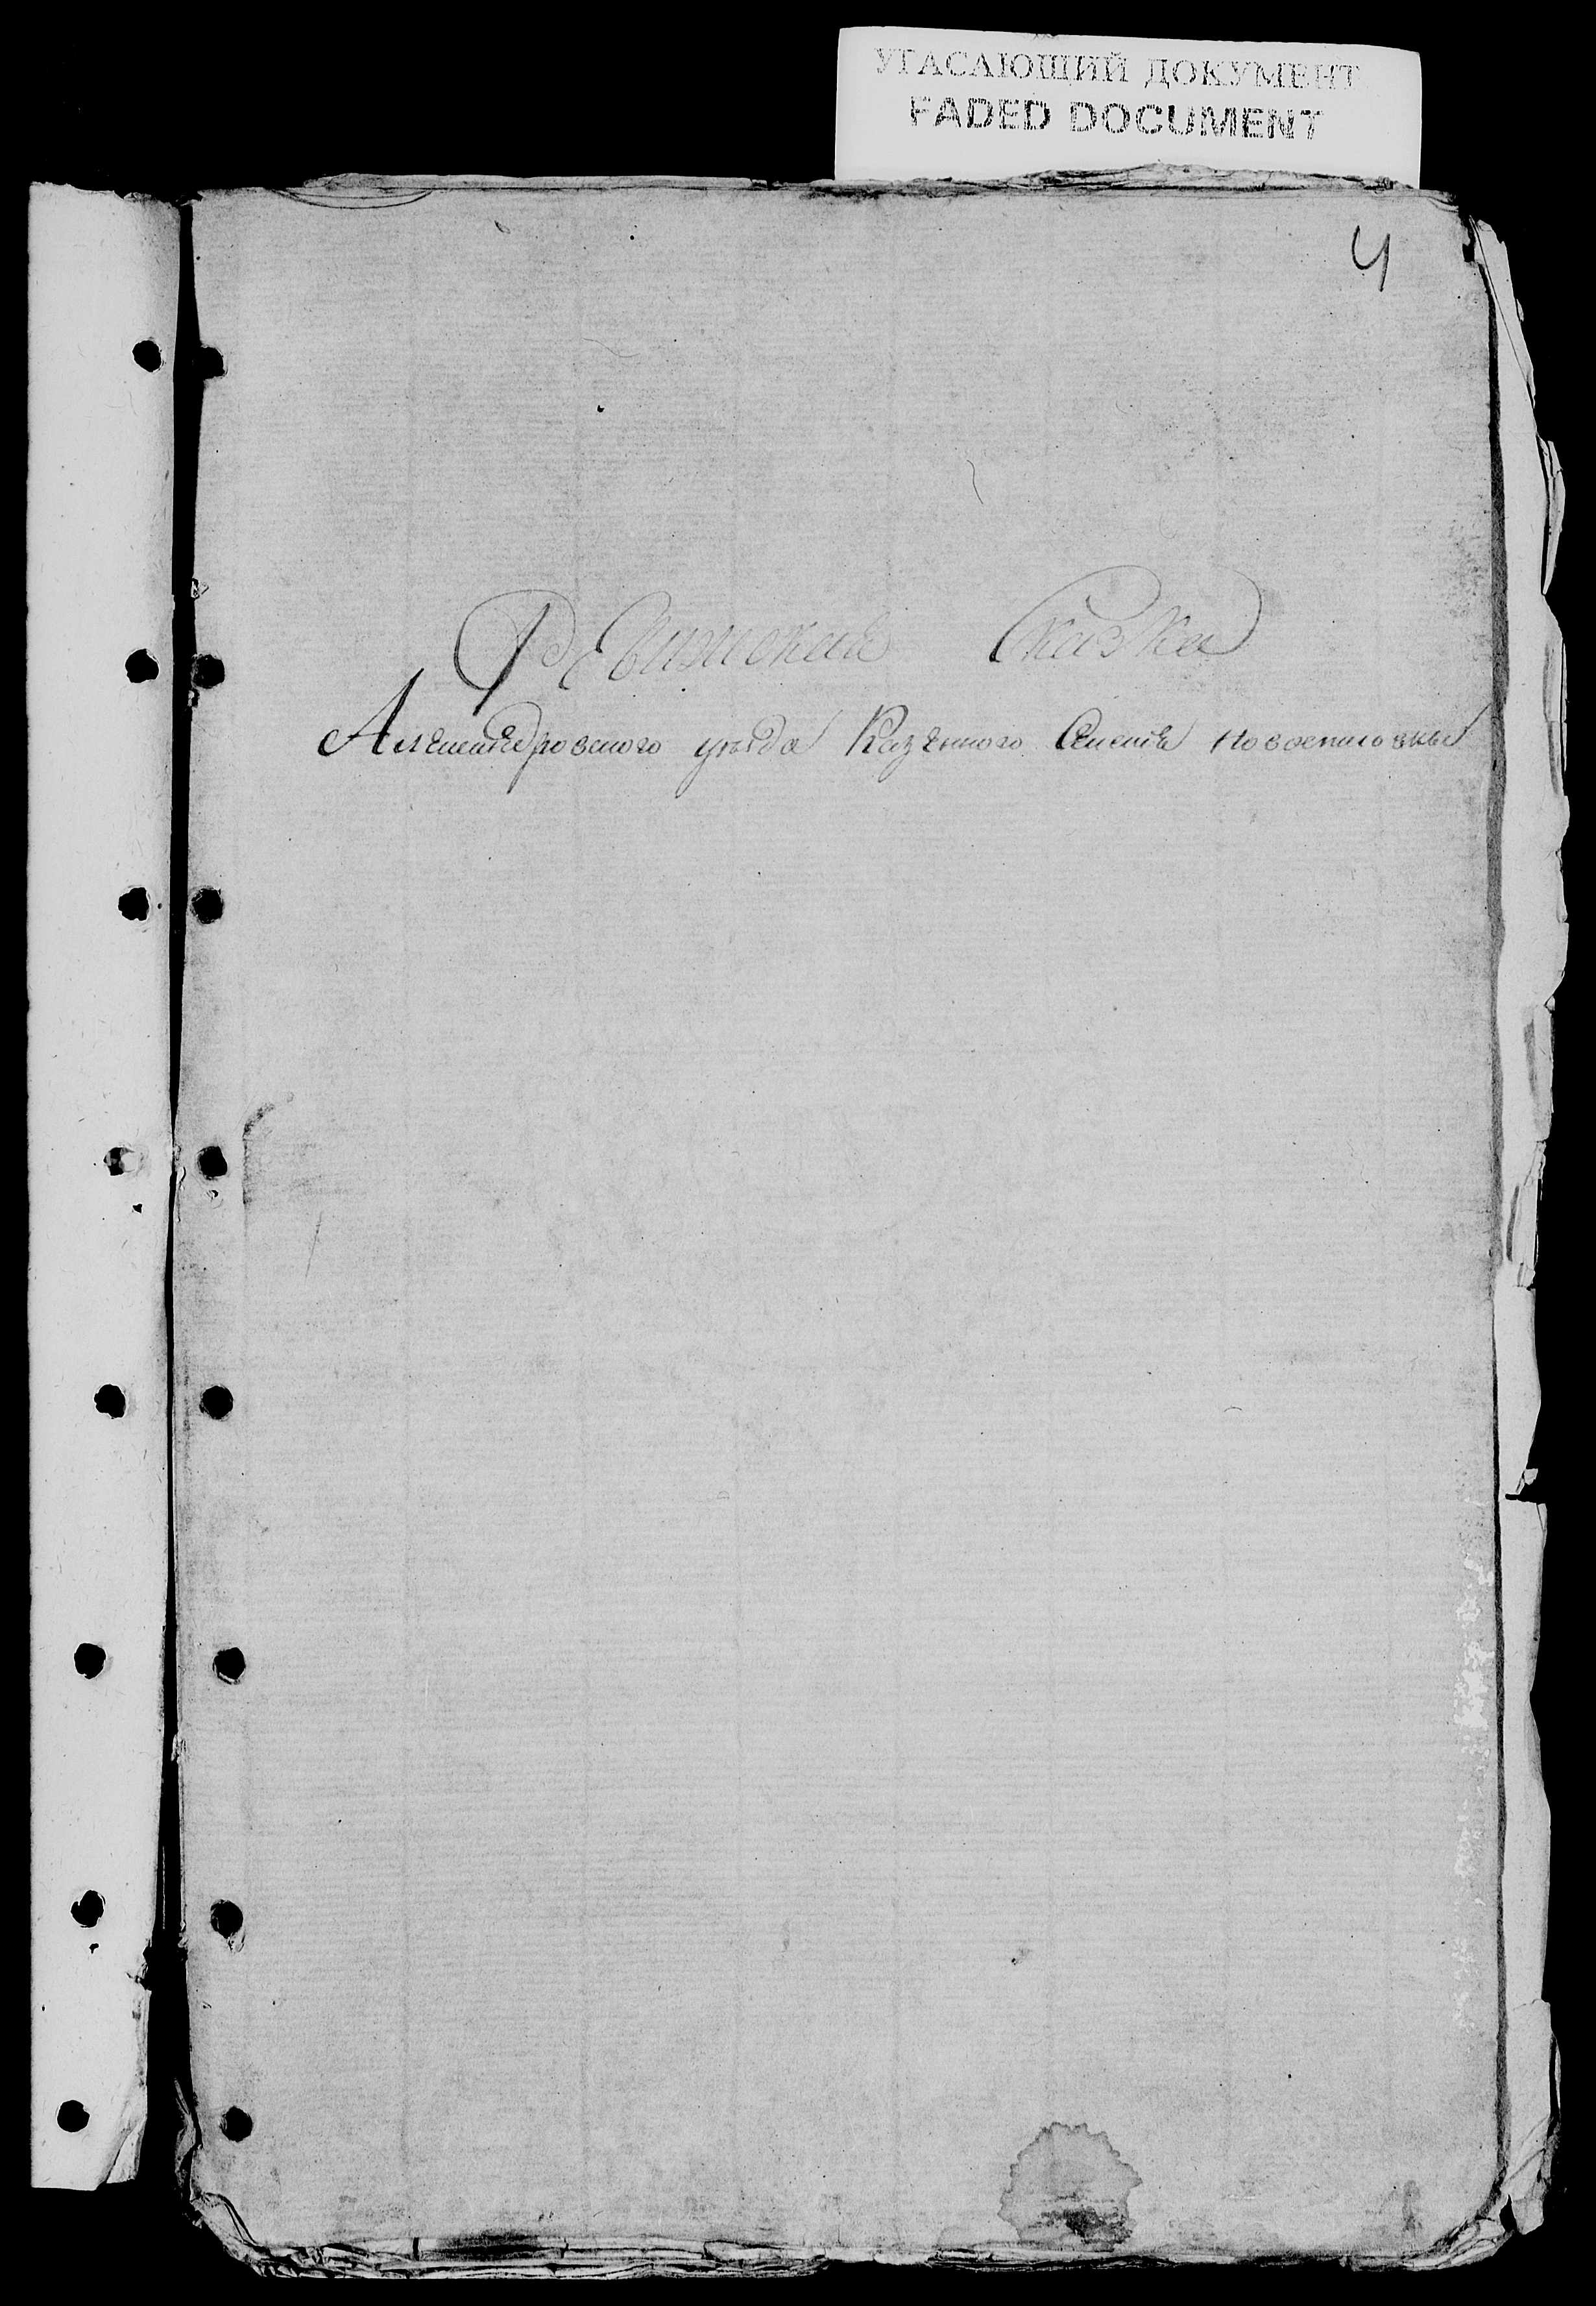 УГАСАЮЩИЙ ДОКУМЕНТ
FADED DOCUMENT
4
Ревизская Сказка
Александровского уезда Казенного Селения